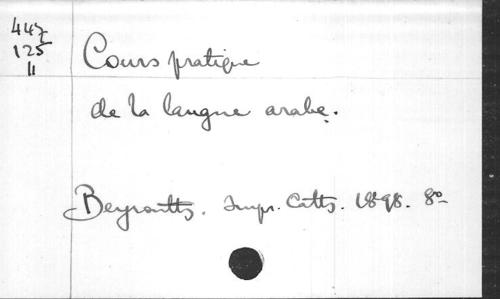 447
125
11
Cours pratique
de la langue arabe.
Beyrouth. Impr. Cath. 1898. 8º